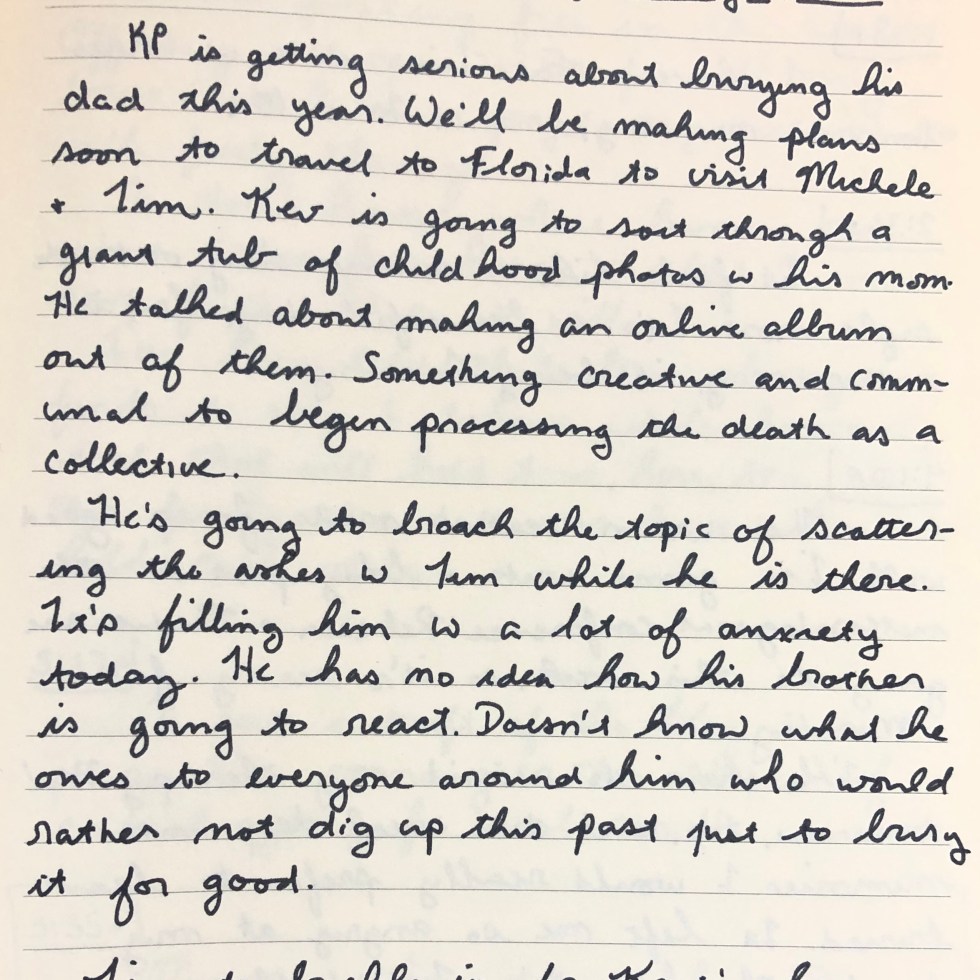 KP is getting serious about burying his
dad this year. We'll be making plans
soon to travel to Florida to visit Michele
+ Tim. Kev is going to sort through a
giant tub of childhood photos w his mom.
He talked about making an online album
out of them. Something creative and comm-
unal to begin processing the death as a
collective.
He's going to broach the topic of scatter-
ing the ashes w Tim while he is there.
It's filling him w a lot of anxiety
today. He has no idea how his brother
is going to react. Doesn't know what he
owes to everyone around him who would
rather not dig up this past just to bury
it for good.